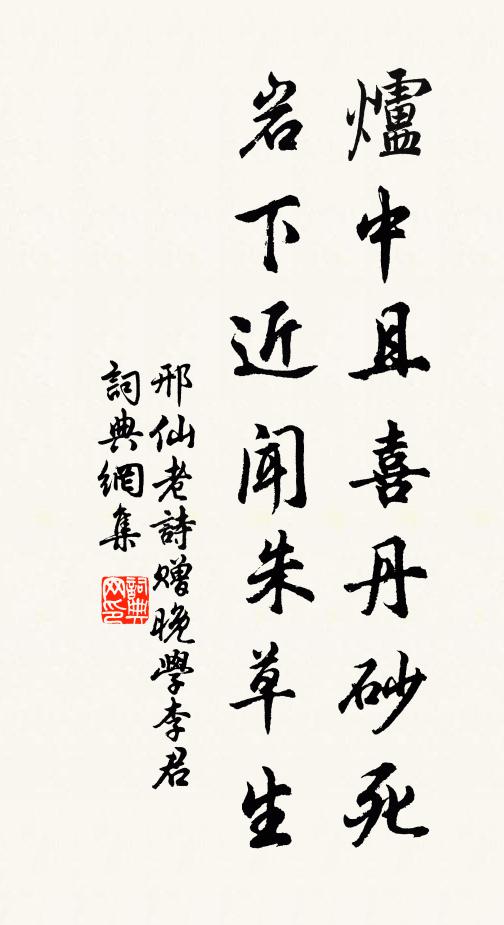 爐中且喜丹砂死
岩下近闻朱草生
邢仙老詩赠晚學李君
詞典網集
詞典